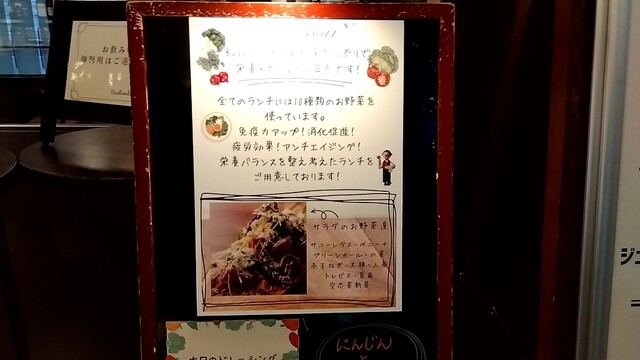 お飲み
御利用はご遠
栄養
です!
全てのランチには10種類のお野菜を
使っています。
免疫力アップ!消化促進!
疲労効果!アンチエイジング!
栄養バランスを整え考えたランチを
ご用意しております!
サラダのお野菜達
サニーレタス・
グリーンカール・水菜
赤玉ねぎ・大根・人参
トレビス・豆苗
空芯菜新芽
本日のドレッシング
にんじん
と
ジュ